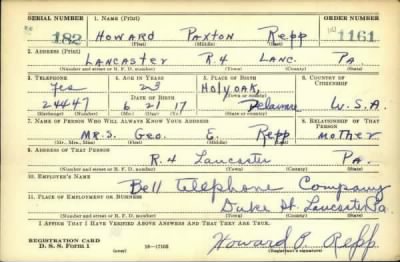 SERIAL NUMBER 1. NAME (Print) ORDER NUMBER
182 HOWARD PAXTON REPP 1161
(First) (Middle) (Last)
2. ADDRESS (Print)
LANCASTER R.4 LANC. PA.
(Number and street or R. F. D. number) (Town) (County) (State)
3. TELEPHONE 4. AGE IN YEARS 5. PLACE OF BIRTH 6. COUNTRY OF CITIZENSHIP
Yes 23 HOLYOAK,
DATE OF BIRTH (Town or county)
24447 6 21 17 Delaware U.S.A.
(Exchange) (Number) (Mo.) (Day) (Yr.) (State or country)
7. NAME OF PERSON WHO WILL ALWAYS KNOW YOUR ADDRESS 8. RELATIONSHIP OF THAT PERSON
MR.S. Geo. E. Repp MOTHER
(Mr., Mrs., Miss) (First) (Middle) (Last)
9. ADDRESS OF THAT PERSON
R.4 Lancaster Pa.
(Number and street or R. F. D. number) (Town) (County) (State)
10. EMPLOYER'S NAME
Bell Telephone Company
11. PLACE OF EMPLOYMENT OR BUSINESS
Duke St. Lancaster Pa.
(Number and street or R. F. D. number) (Town) (County) (State)
I AFFIRM THAT I HAVE VERIFIED ABOVE ANSWERS AND THAT THEY ARE TRUE.
REGISTRATION CARD
D. S. S. Form 1 (over) 16—17105 Howard P. Repp.
(Registrant's signature)